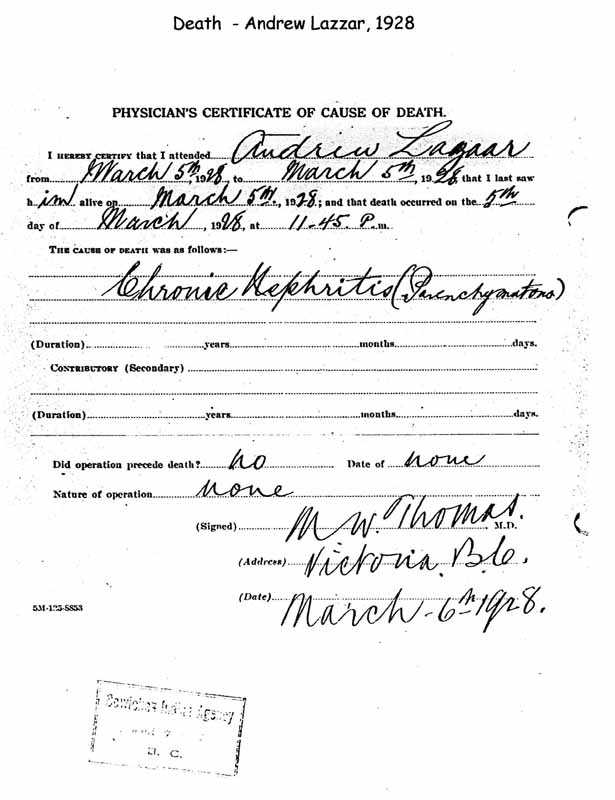 Death - Andrew Lazzar, 1928
PHYSICIAN'S CERTIFICATE OF CAUSE OF DEATH.
I HEREBY CERTIFY that I attended Andrew Lazaar
from March 5th, 1928, to March 5th, 1928, that I last saw
him alive on March 5th, 1928; and that death occurred on the 5th
day of March, 1928, at 11-45 P.m.
THE CAUSE OF DEATH was as follows:—
Chronic Nephritis (Parenchymatous)
(Duration) years months days.
CONTRIBUTORY (Secondary)
(Duration) years months days.
Did operation precede death? no Date of none
Nature of operation none
(Signed) M W. Thomas. M.D.
(Address) Victoria, B.C.
(Date) March - 6th 1928.
5M-125-8853
Cowichan Indian Agency
B. C.